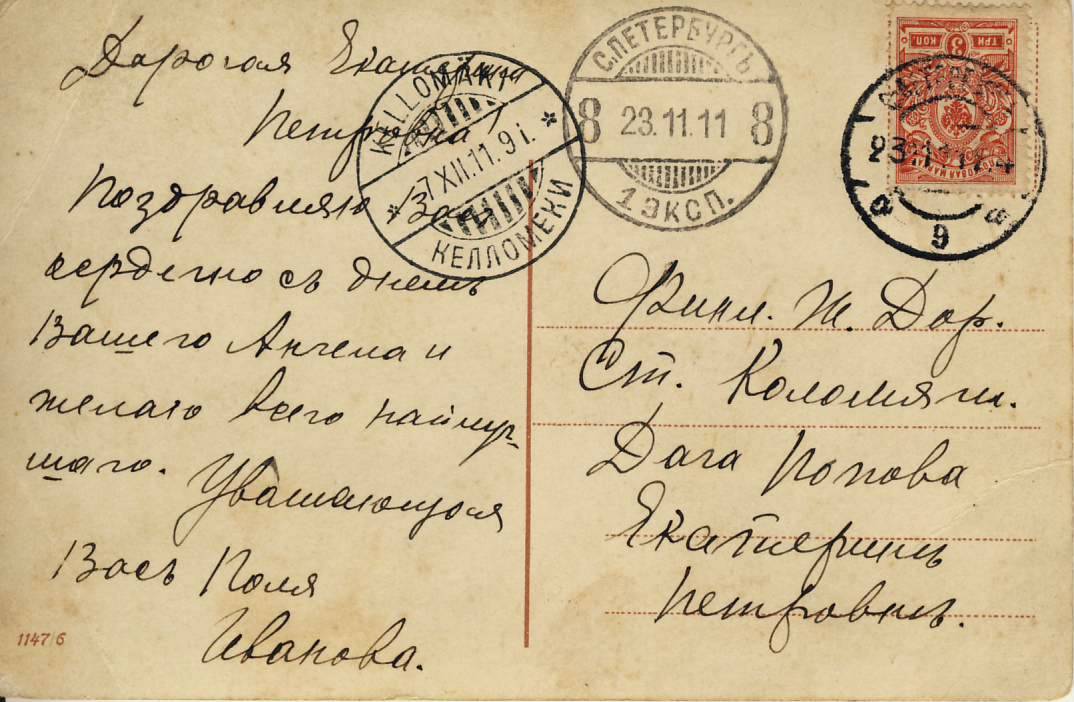 Дорогая Екатерина
Петровна!
Поздравляю Васъ
сердечно съ днемъ
Вашего Ангела и
желаю всего найлуч-
шаго. Уважающая
Васъ Поля
Иванова.
1147/6
KELLOMÄKI
-7.XII.11. 9 i.
КЕЛЛОМЕКИ
С.ПЕТЕРБУРГЪ
8 23.11.11 8
1 ЭКСП.
ТРИ 3 КОП.
9
Финл. Ж. Дор.
Ст. Коломяги.
Дача Попова
Екатеринѣ
Петровнѣ.